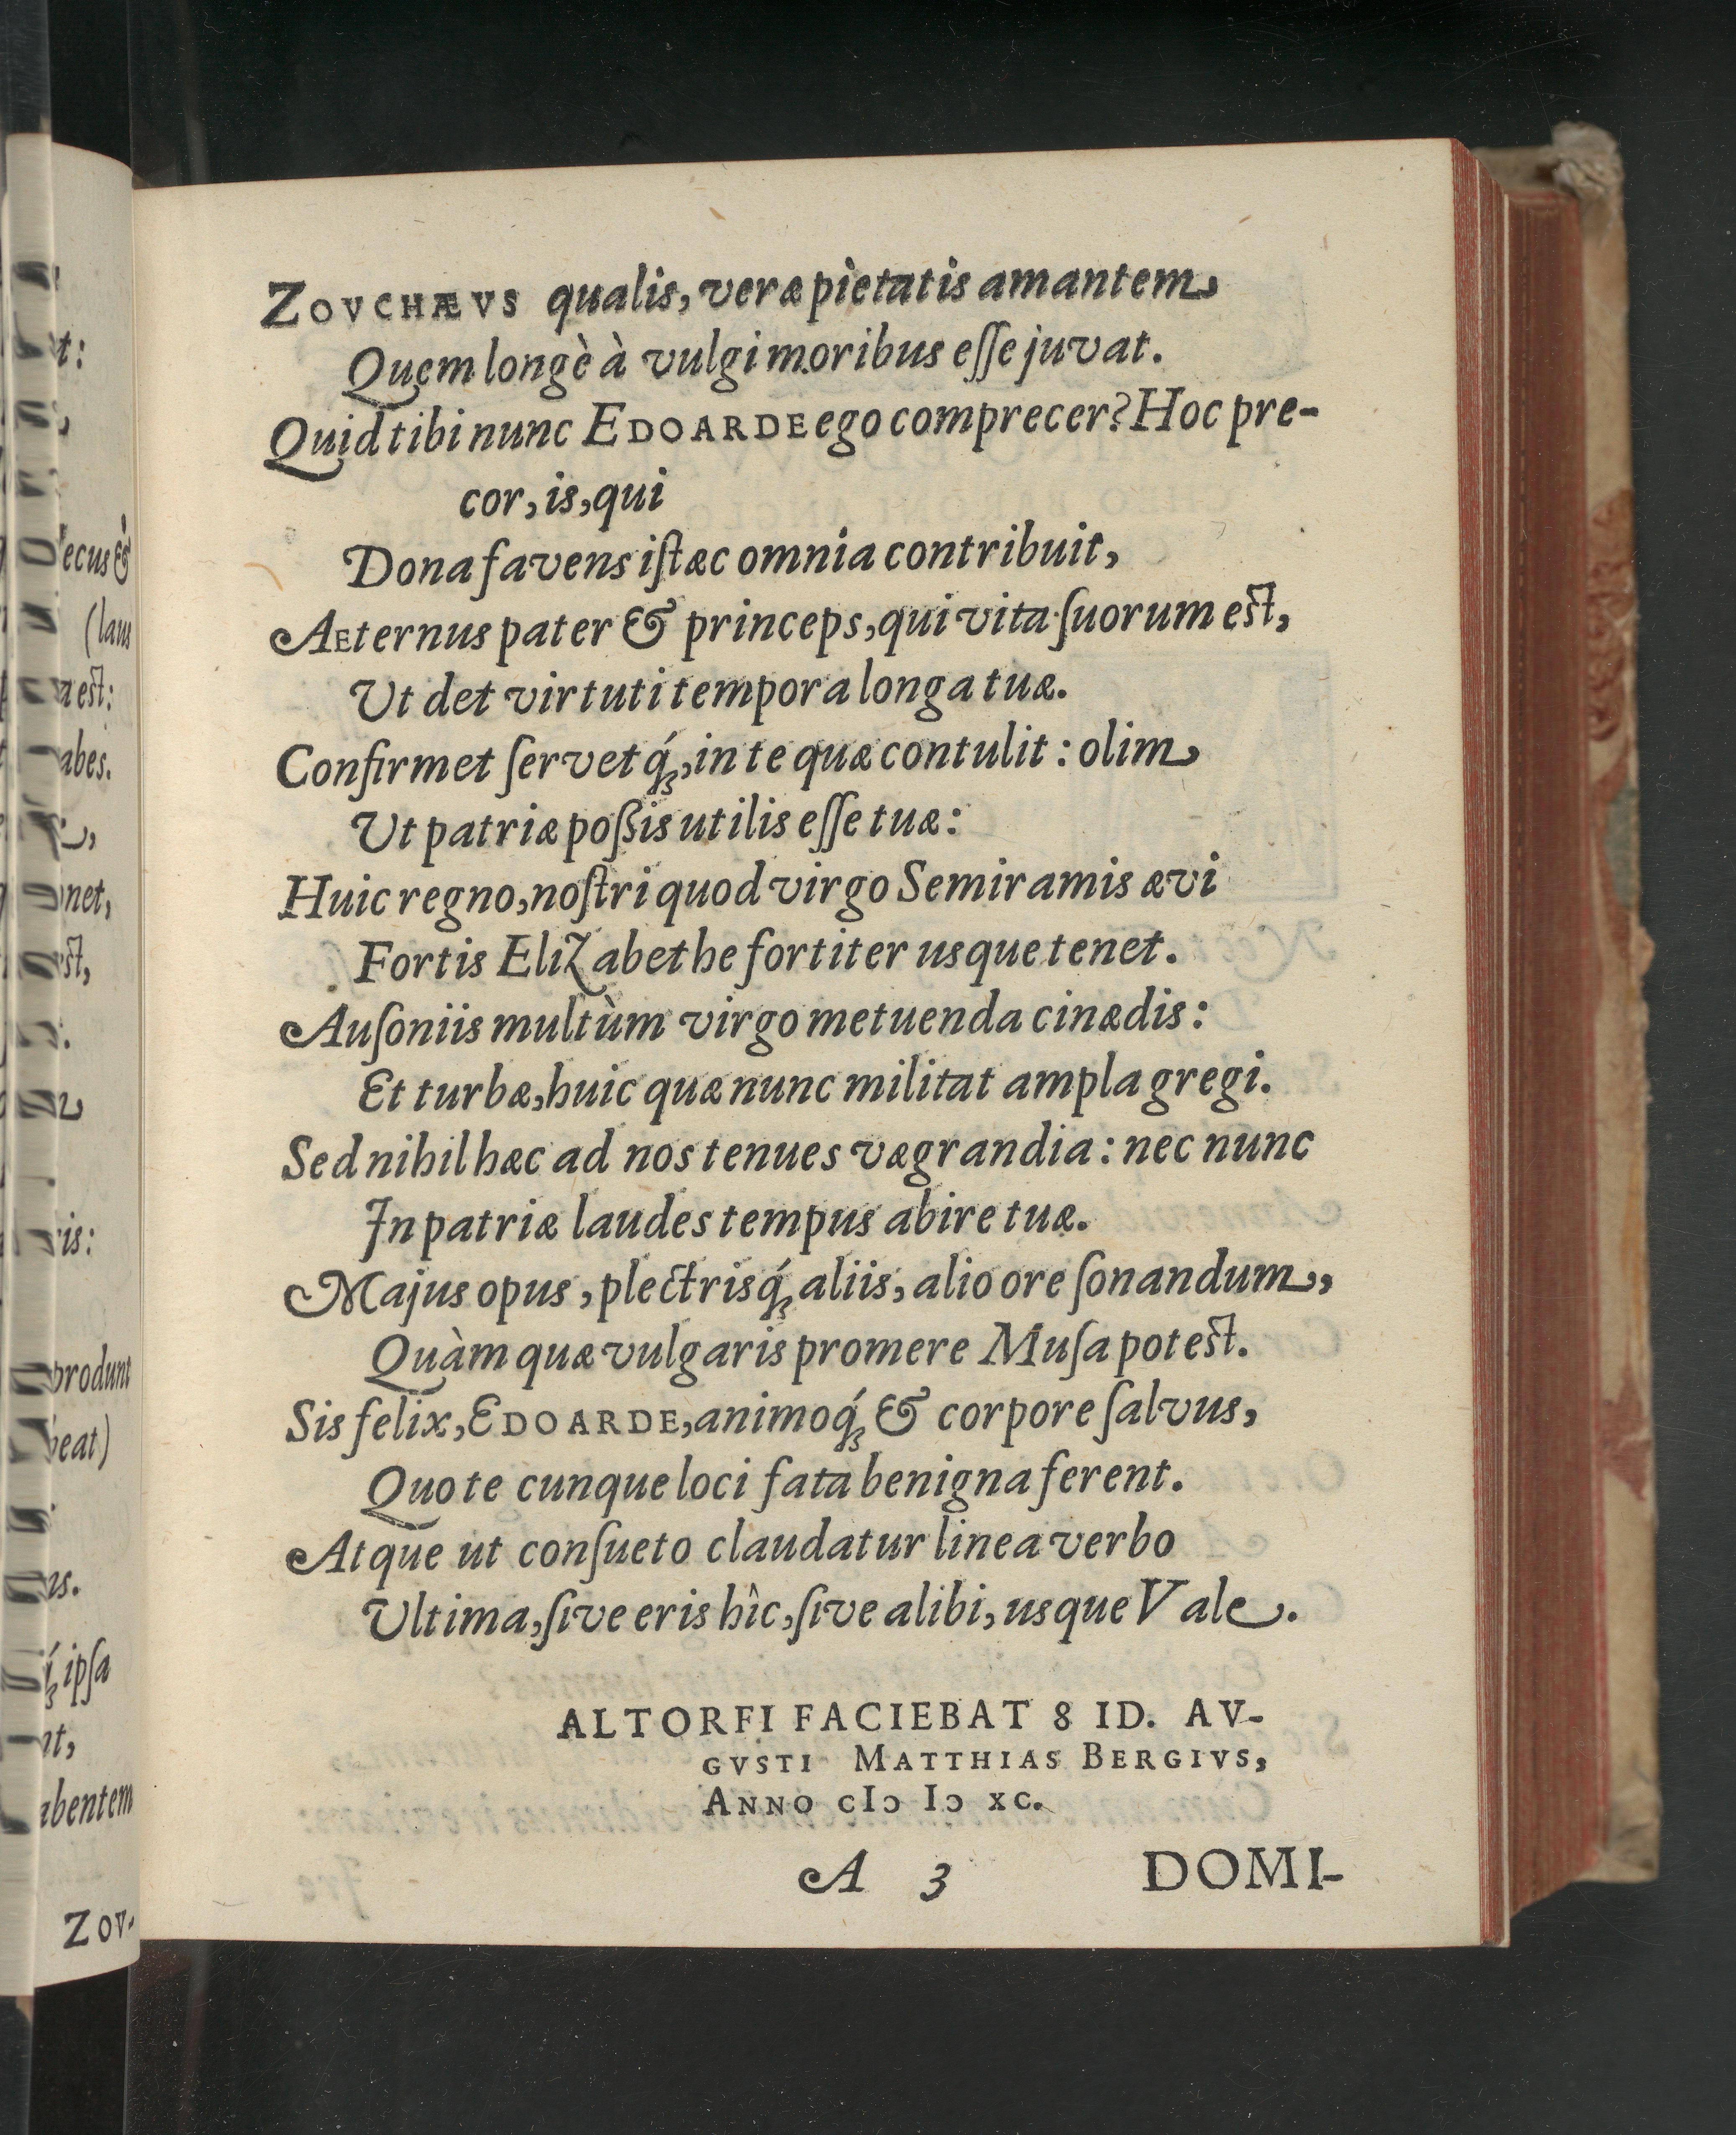 ZOVCHÆVS qualis, veræ pìetatis amantem
Quem longè à vulgi moribus eſſe juvat.
Quid tibi nunc EDOARDE ego comprecer? Hoc pre-
cor, is, qui
Dona favens iſtæc omnia contribuit,
AEternus pater & princeps, qui vita ſuorum eſt,
Ut det virtuti tempora longa tuæ.
Confirmet ſervetq́ꝫ, in te quæ contulit: olim
Ut patriæ poßis utilis eſſe tuæ:
Huic regno, noſtri quod virgo Semiramis ævi
Fortis Elizabethe fortiter usque tenet.
Auſoniis multùm virgo metuenda cinædis:
Et turbæ, huic quæ nunc militat ampla gregi.
Sed nihil hæc ad nos tenues vægrandia: nec nunc
In patriæ laudes tempus abire tuæ.
Majus opus, plectrisq́ꝫ aliis, alio ore ſonandum,
Quàm quæ vulgaris promere Muſa poteſt.
Sis felix, EDOARDE, animoq́ꝫ & corpore ſalvus,
Quo te cunque loci fata benigna ferent.
Atque ut conſueto claudatur linea verbo
Ultima, ſive eris hîc, ſive alibi, usque Vale.
ALTORFI FACIEBAT 8 ID. AV-
GVSTI MATTHIAS BERGIVS,
ANNO cIɔ Iɔ xc.
A 3 DOMI-
t:
ecus &
(laus
a est:
abes.
net,
ris:
produnt
beat)
ipſa
abentem
ZOV-